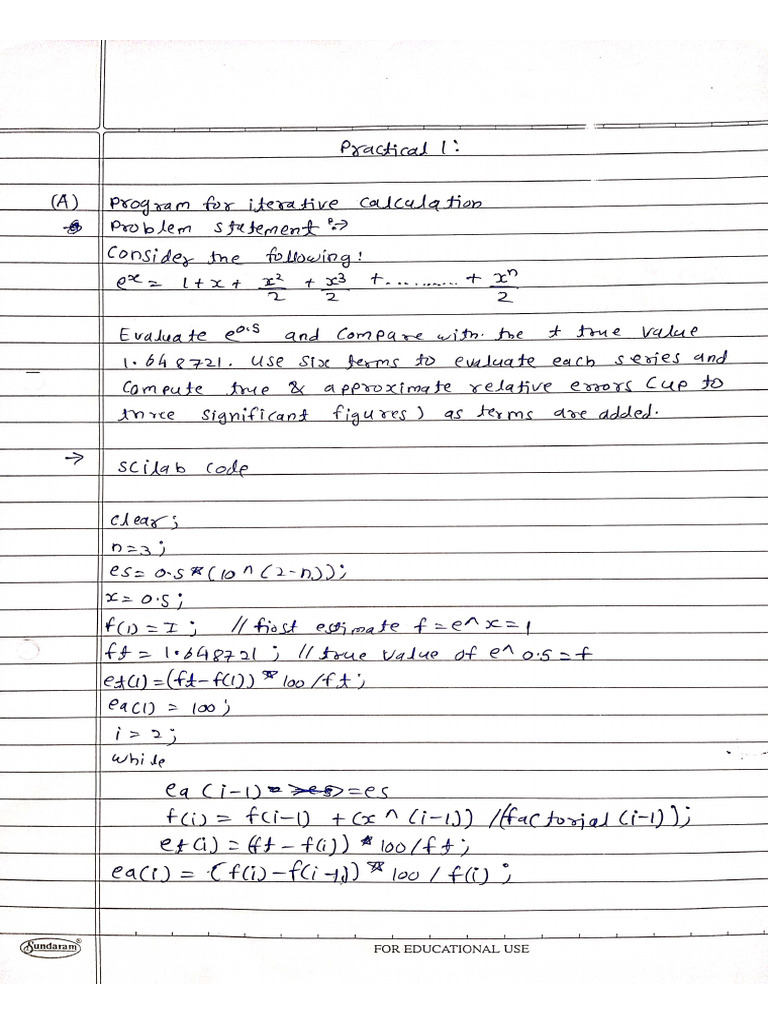 Practical 1:
(A) Program for iterative calculation
Problem statement :→
Consider the following:
e^x = 1 + x + x^2/2 + x^3/2 + ........... + x^n/2
Evaluate e^0.5 and compare with. the t true value
1.648721. use six terms to evaluate each series and
compute true & approximate relative errors (up to
three significant figures) as terms are added.
→ scilab code
clear;
n=3;
es= 0.5*(10^(2-n));
x=0.5;
f(1)=I; // first estimate f=e^x=1
ft=1.648721; // true value of e^0.5=f
et(1)=(ft-f(1))*100/ft;
ea(1)=100;
i=2;
while
ea(i-1)>=es
f(i)= f(i-1) +(x^(i-1)) /(factorial(i-1));
et(i)=(ft-f(i))*100/ft;
ea(i)=(f(i)-f(i-1))*100/f(i);
Sundaram
FOR EDUCATIONAL USE